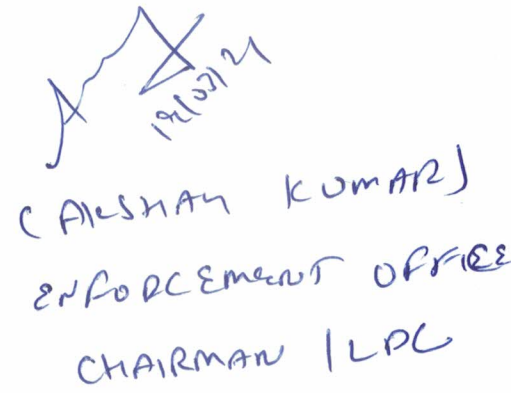 19/03/21
(AKSHAY KUMAR)
ENFORCEMENT OFFICE
CHAIRMAN / LDC